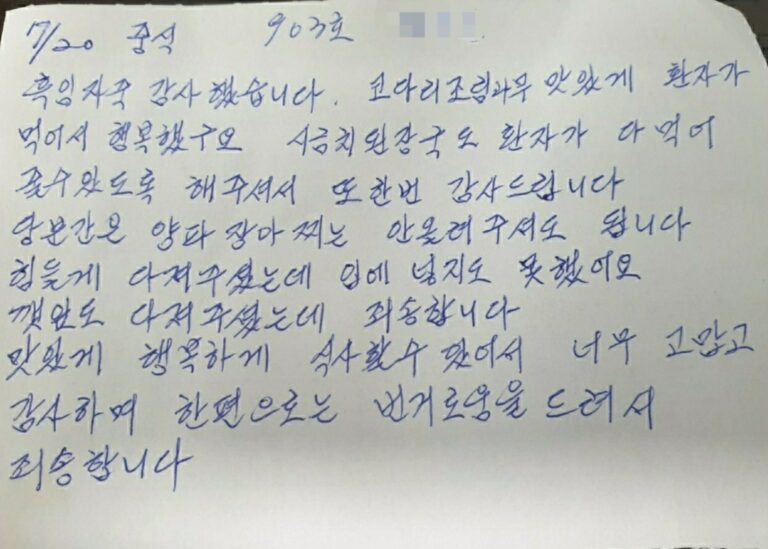 7/20 중식 903호
흑임자죽 감사했습니다. 코다리조림과무 맛있게 환자가
먹어서 행복했구요 시금치된장국도 환자가 다먹어
줄수있도록 해주셔서 또한번 감사드립니다
당분간은 양파장아찌는 안올려주셔도 됩니다
힘들게 다져주셨는데 입에 넣지도 못했어요
깻잎도 다져주셨는데 죄송합니다
맛있게 행복하게 식사할수 있어서 너무 고맙고
감사하며 한편으로는 번거로움을 드려서
죄송합니다